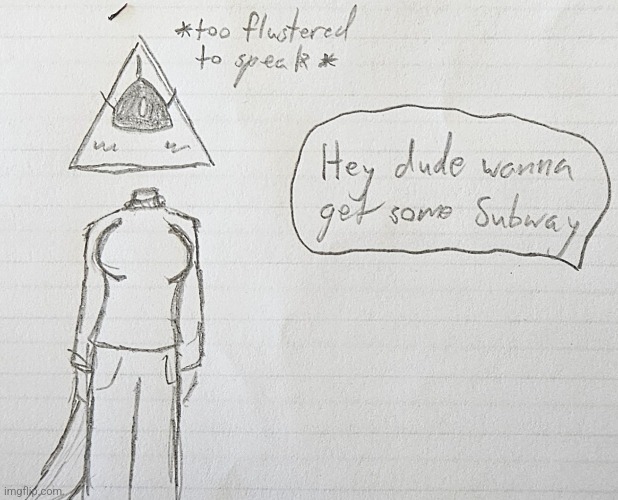 *too flustered
to speak*
Hey dude wanna
get some Subway
imgflip.com